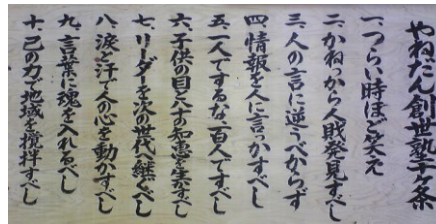 やねだん創世塾十ヶ条
一、つらい時ほど笑え
二、かねっから人財発見すべし
三、人の言に逆うべからず
四、情報を人に言っかすべし
五、一人でするな、百人ですべし
六、子供の目、八十の知恵を生かすべし
七、リーダーを次の世代へ継ぐべし
八、涙と汗で人の心を動かすべし
九、言葉に魂を入れるべし
十、己の力で地域を撹拌すべし